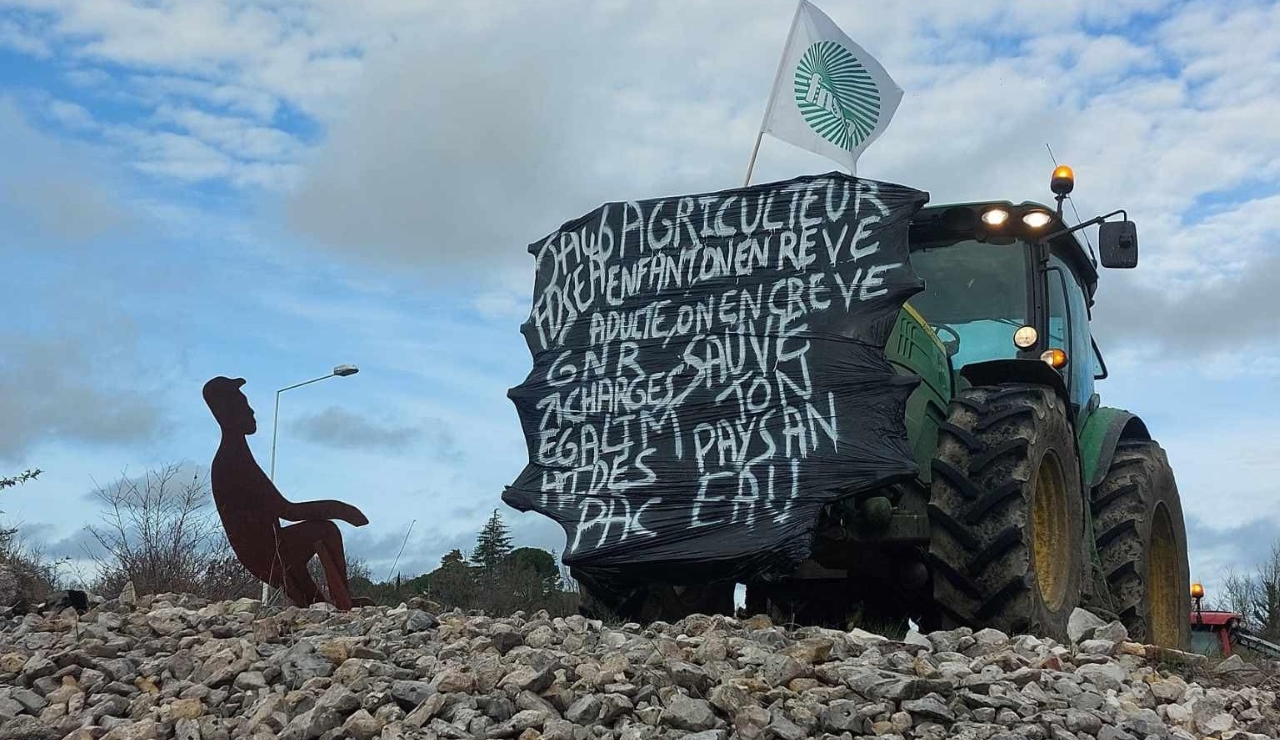 fnsea
JA46 AGRICULTEUR
FDSEA ENFANT ON EN REVE
ADULTE, ON EN CREVE
GNR SAUVE
CHARGES TON
EGALIM PAYSAN
PAC EAU